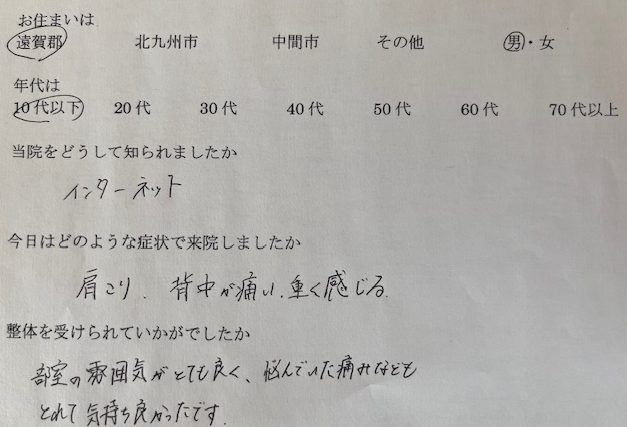 お住まいは
遠賀郡 北九州市 中間市 その他 男・女
年代は
10代以下 20代 30代 40代 50代 60代 70代以上
当院をどうして知られましたか
インターネット
今日はどのような症状で来院しましたか
肩こり、背中が痛い、重く感じる。
整体を受けられていかがでしたか
部室の雰囲気がとても良く、悩んでいた痛みなども
とれて気持ち良かったです。